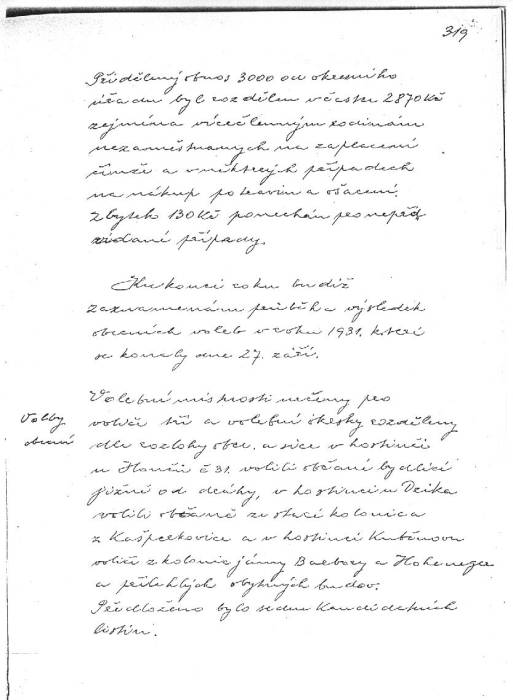 319
Přidělený obnos 3000 od okresního
úřadu byl rozdělen v částce 2870 Kč
zejména vícečlenným rodinám
nezaměstnaných na zaplacení
činže a v některých případech
na nákup potravin a ošacení.
Zbytek 130 Kč ponechán pro nepřed
vídané případy.
Ku konci roku budiž
zaznamenám průběh a výsledek
obecních voleb v roku 1931. kteří
se konaly dne 27. září.
Volební místnosti určeny pro
Volby
voliče tři a volební okrsky rozděleny
obecní
dle rozlohy obce. a sice v hostinci
u č 31. volili občané bydlící
jižně od dráhy, v hostinci u
volili občané ze staré kolonie
z a v hostinci
voliči z kolonie jámy Barbory a Hohenegger
a přilehlých obytných budov.
Předloženo bylo sedm kandidátních
listin.